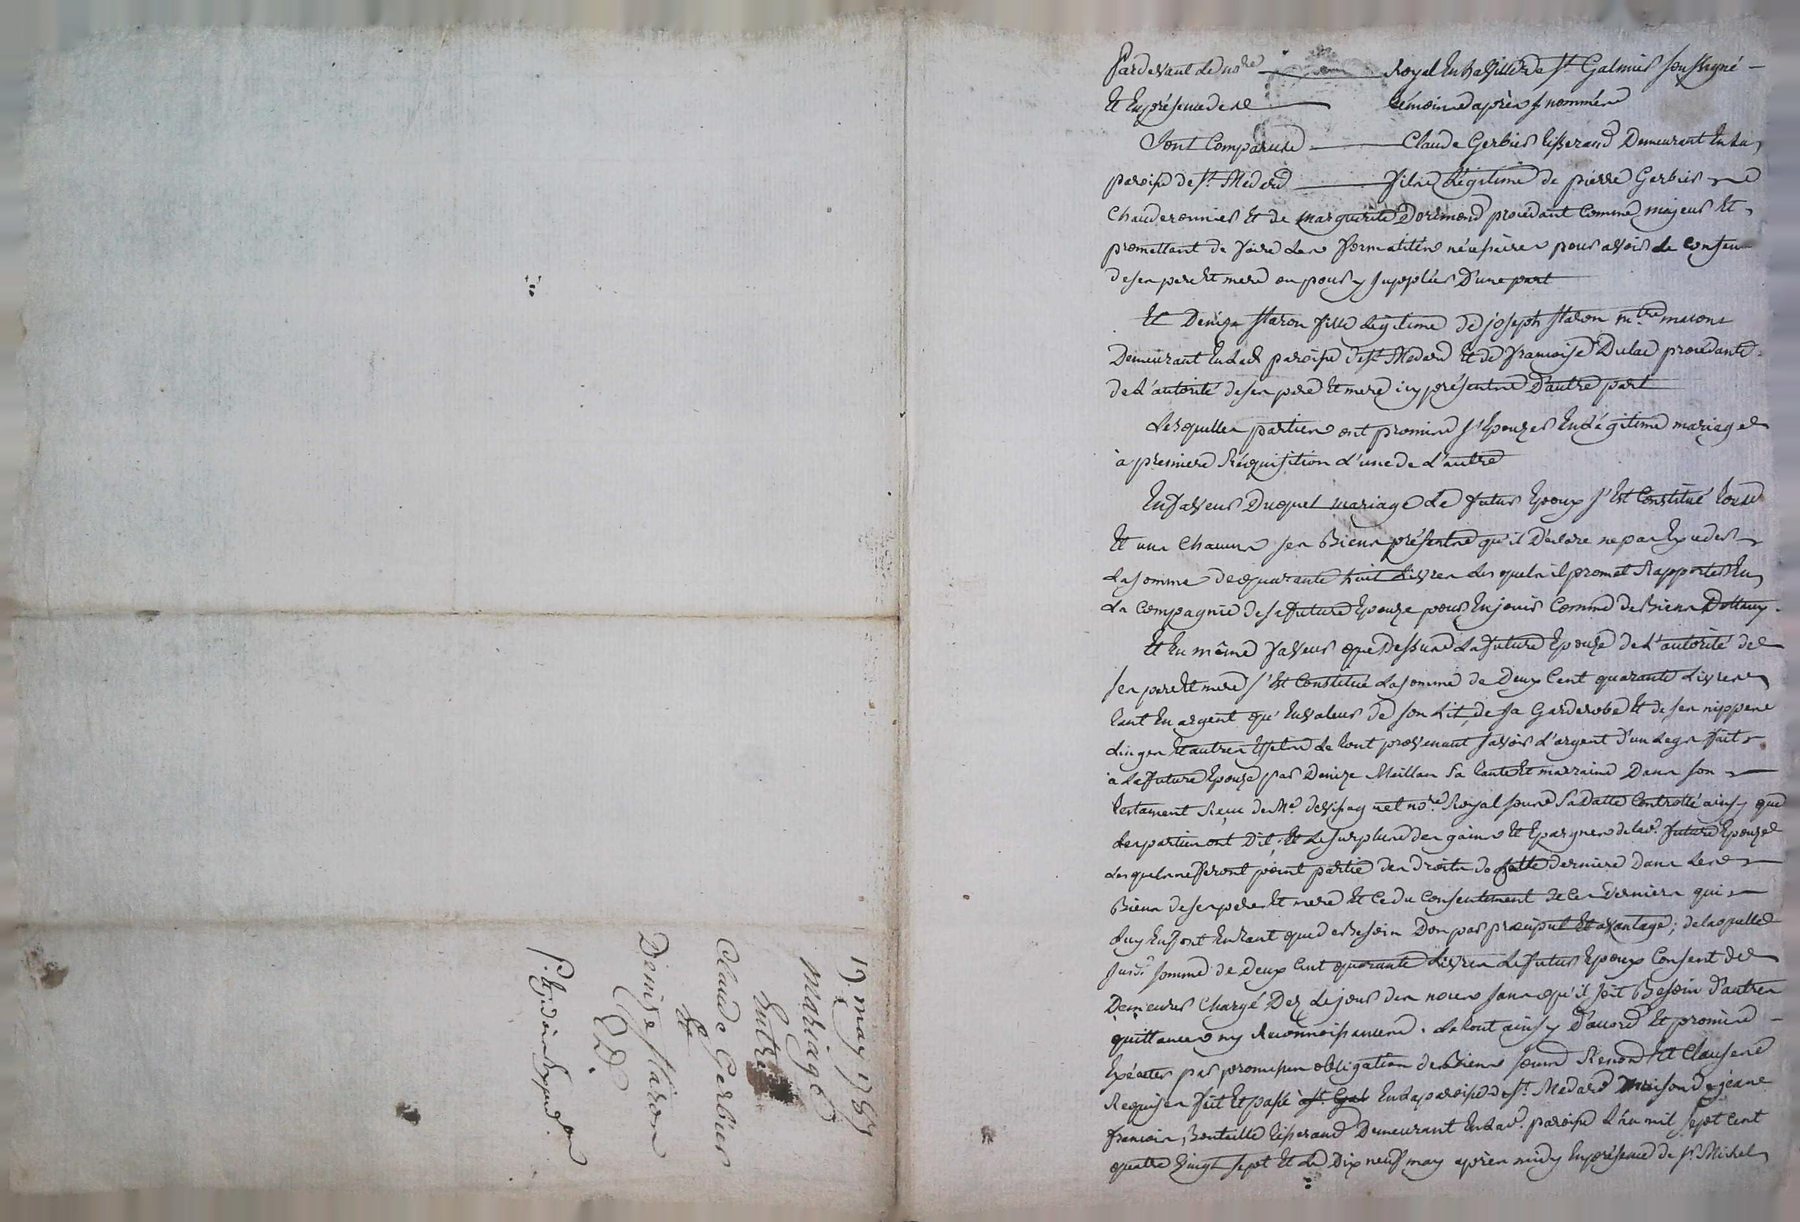 Pardevant le no.re Royal En la Ville de St Galmier soussigné
Et En présence des témoins après nommés
Sont Comparus Claude Gerbier tisserand Demeurant En la
paroisse de St Medard fils Légitime de pierre Gerbier
chauderonnier Et de marguerite Dorémond procédant Comme majeur Et
promettant de faire les formalités nécessaires pour avoir le consen
de ses pere Et mere ou pour y supplées D'une part
Et Denize Staron fille Légitime de joseph Staron m.tre masons
Demeurant En lad. paroisse de St Medard Et de françoise Dulac procédante
de L'autorité de ses pere Et mere icy présents D'autre part
Lesquelles parties ont promis s'Epouzer En Légitime mariage
à premiere Réquisition l'une de l'autre
En faveur Duquel mariage Le futur Epoux s'Est Constitué tous
Et uns Chacuns ses Biens présents qu'il Déclare ne pas Exceder
La somme de quarante huit Livres Lesquels il promet Rapporter En
La Compagnie de sa future Epouze pour En jouir Comme de Biens Dottaux
Et En même faveur que Dessus La future Epouze de L'autorité de
ses pere Et mere s'Est Constitué La somme de Deux Cent quarante Livres
tant En argent qu'En valeur de son Lit, de sa Garderobe Et de ses nippes
Linges Et autres Effets Le tout provenant savoir L'argent d'un Legs fait
à La future Epouze par Denize Meillan sa tante Et marraine Dans son
testament Reçu de Me no.re Royal sous sa Datte Controllé ainsy que
Les parties ont Dit, Et Le surplus des gains Et Epargnes de lad. future Epouze
Lesquels ne feront point partie des droits de cette derniere Dans Les
Biens de ses pere Et mere Et Ce du Consentement de Ces Derniers qui
Luy En font En tant que de Besoin Don par préciput Et avantage; de laquelle
susd. somme de Deux Cent quarante Livres Le futur Epoux Consent de
Demeurer Chargé Dez Le jour des noces sans qu'il soit Besoin d'autres
quittances ny Reconnoissances. Le tout ainsy D'accord Et promis
Exécuter par promesses obligation de Biens sous Renon. Et Clauses
Requises fait Et passé à St Gal En La paroisse de St Medard maison de jean
françois Bouteille tisserand Demeurant En lad. paroisse L'an mil sept cent
quatre Vingt sept Et Le Dix neuf may après midy En présence de Sr Michel
19. may 1787
Mariage
Entre
Claude Gerbier
Et
Denize Staron
E D.